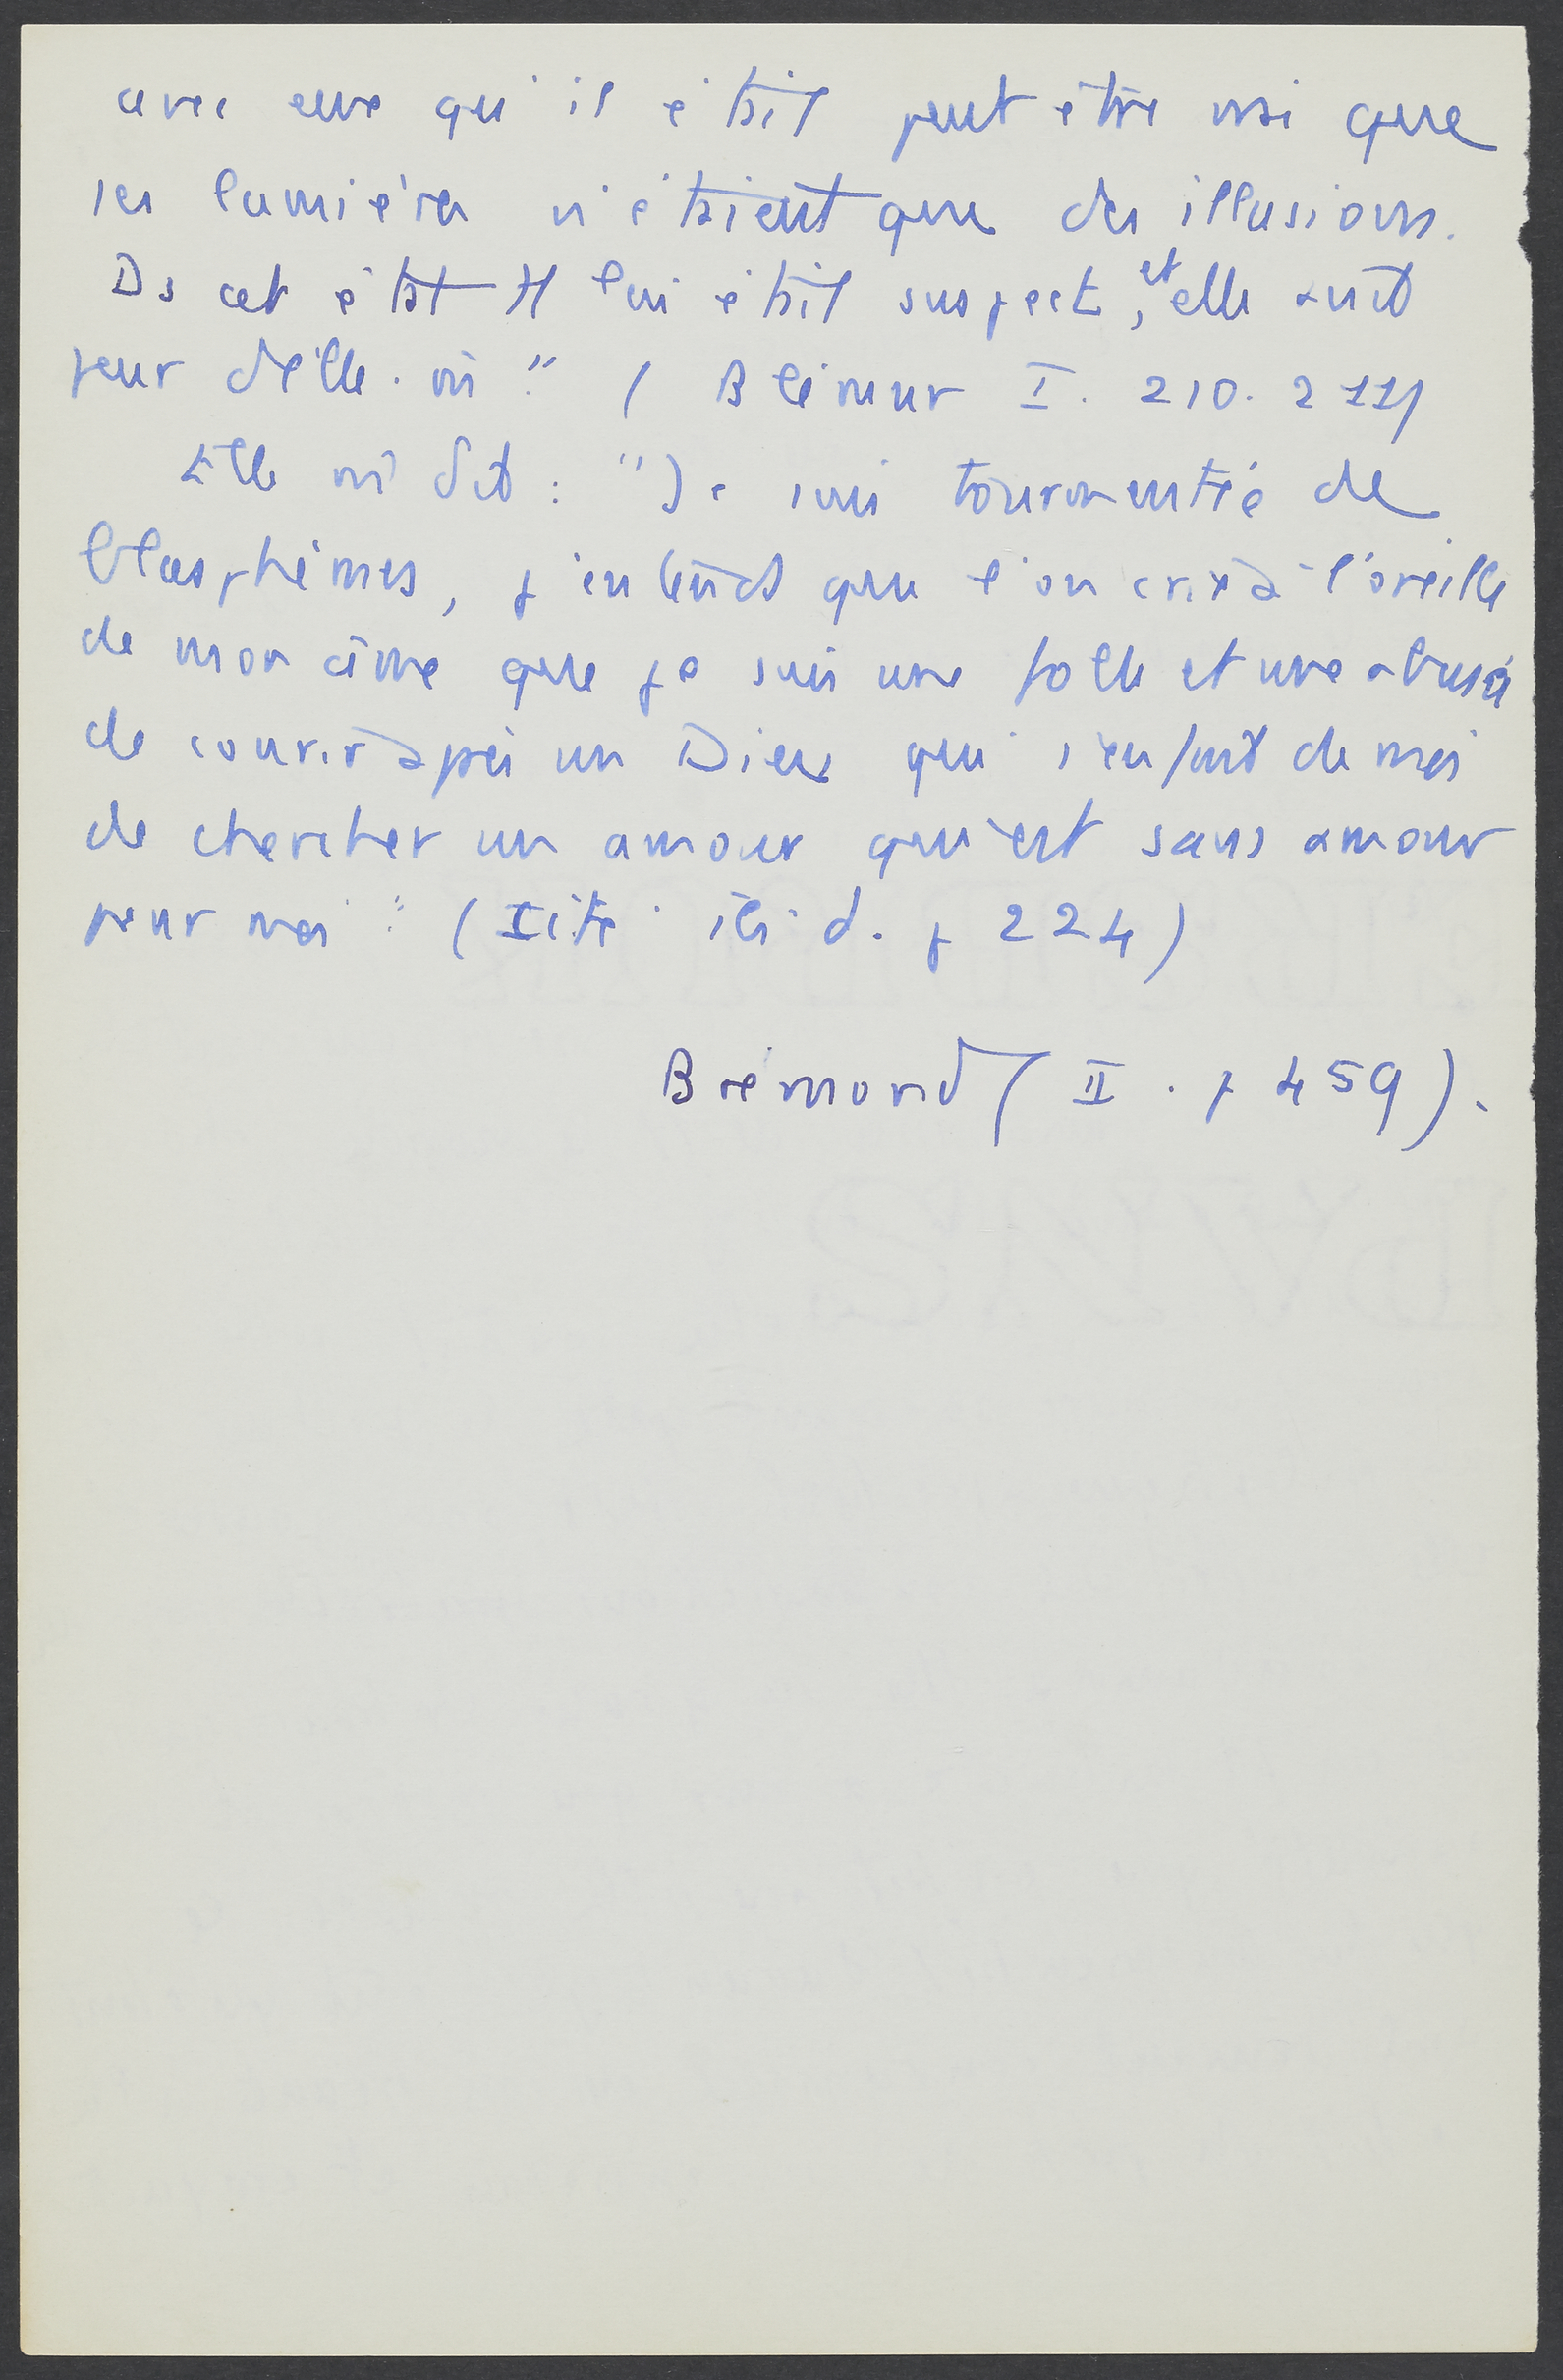 avec eux qu'il était peut être vrai que
ses lumières n'étaient que des illusions.
Ds cet état tt lui était suspect, et elle avait
peur d'elle. m̂ " ( Blémur I. 210. 211)
Elle m̂ dit : "Je suis tourmentée de
blasphèmes, j'entends que l'on crie à l'oreille
de mon âme que je suis une folle et une abusée
de courir après un Dieu qui s'enfuit de moi
de chercher un amour qui est sans amour
pour moi" (Cité ibid. p 224)
Brémond ( II . p 459).